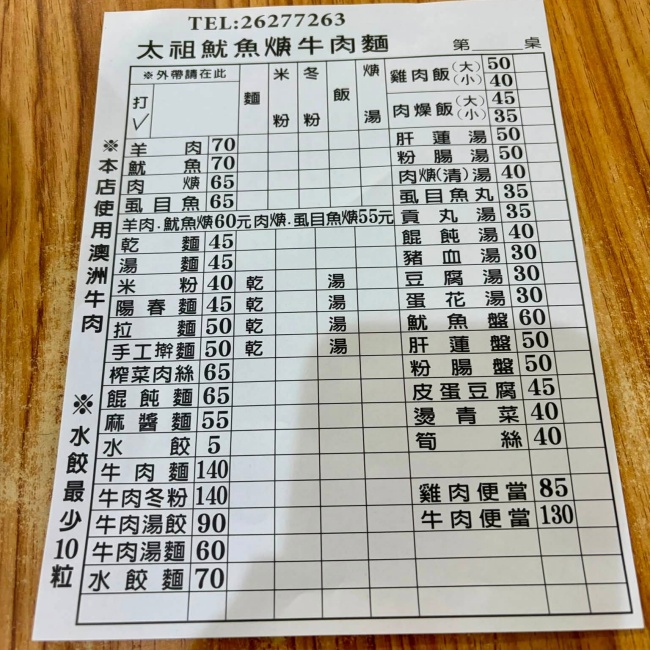 TEL:26277263
太祖魷魚焿牛肉麵 第___桌
※外帶請在此
打✓
麵 米粉 冬粉 飯 焿湯
羊肉 70
魷魚 70
肉焿 65
虱目魚 65
羊肉.魷魚焿60元肉焿.虱目魚焿55元
乾麵 45
湯麵 45
米粉 40 乾 湯
陽春麵 45 乾 湯
拉麵 50 乾 湯
手工擀麵 50 乾 湯
榨菜肉絲 65
餛飩麵 65
麻醬麵 55
水餃 5
牛肉麵 140
牛肉冬粉 140
牛肉湯餃 90
牛肉湯麵 60
水餃麵 70
雞肉飯(大) 50
(小) 40
肉燥飯(大) 45
(小) 35
肝蓮湯 50
粉腸湯 50
肉焿(清)湯 40
虱目魚丸 35
貢丸湯 35
餛飩湯 40
豬血湯 30
豆腐湯 30
蛋花湯 30
魷魚盤 60
肝蓮盤 50
粉腸盤 50
皮蛋豆腐 45
燙青菜 40
筍絲 40
雞肉便當 85
牛肉便當 130
※本店使用澳洲牛肉
※水餃最少10粒